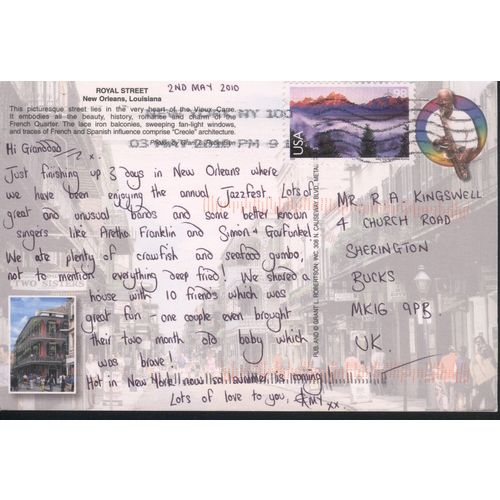 ROYAL STREET
New Orleans, Louisiana
This picturesque street lies in the very heart of the Vieux Carre.
It embodies all the beauty, history, romance and charm of the
French Quarter. The lace iron balconies, sweeping fan-light windows,
and traces of French and Spanish influence comprise "Creole" architecture.
Photo by Grant L. Robertson
2ND MAY 2010
NY 100
03 PM 9
USA
98
Hi Granddad x
Just finishing up 3 days in New Orleans where
we have been enjoying the annual Jazzfest. Lots of
great and unusual bands and some better known
singers like Aretha Franklin and Simon & Garfunkel
We ate plenty of crawfish and seafood gumbo,
not to mention everything deep fried! We shared a
house with 10 friends which was
great fun - one couple even brought
their two month old baby which
was brave!
Hot in New York now so summer is coming
Lots of love to you, AMY xx
TWO SISTERS
PUB. AND © GRANT L. ROBERTSON, INC. 308 N. CAUSEWAY BLVD. METAIRIE
MR. R. A. KINGSWELL
4 CHURCH ROAD
SHERINGTON
BUCKS
MK16 9PB
UK.